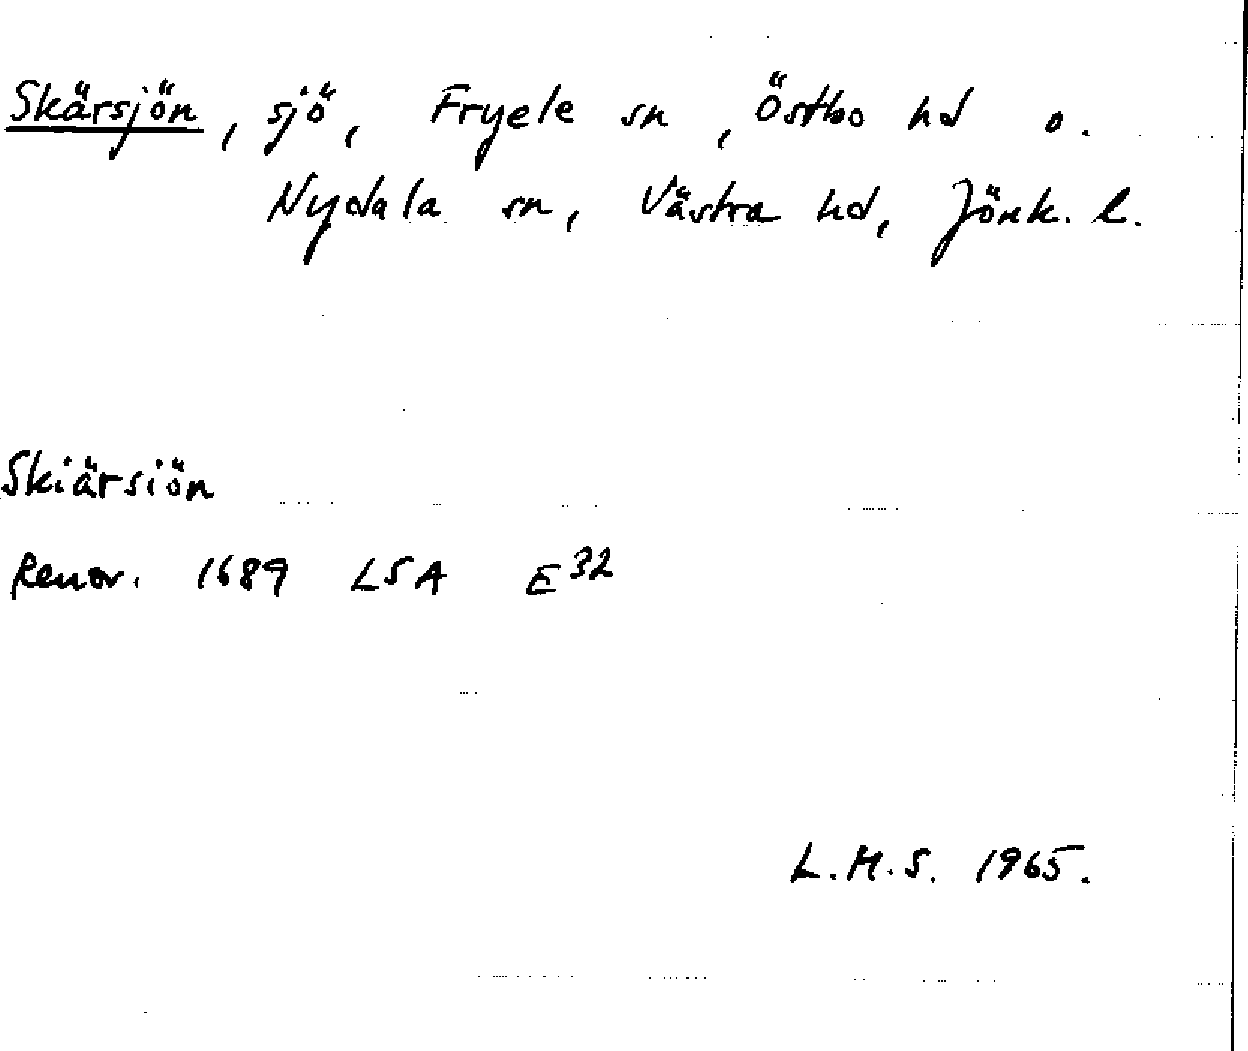 Skärsjön, sjö, Fryele sn, Östbo hd o.
Nydala sn, Västra hd, Jönk. l.
Skiärsiön
Renov. 1689 LSA E32
L.H.S. 1965.